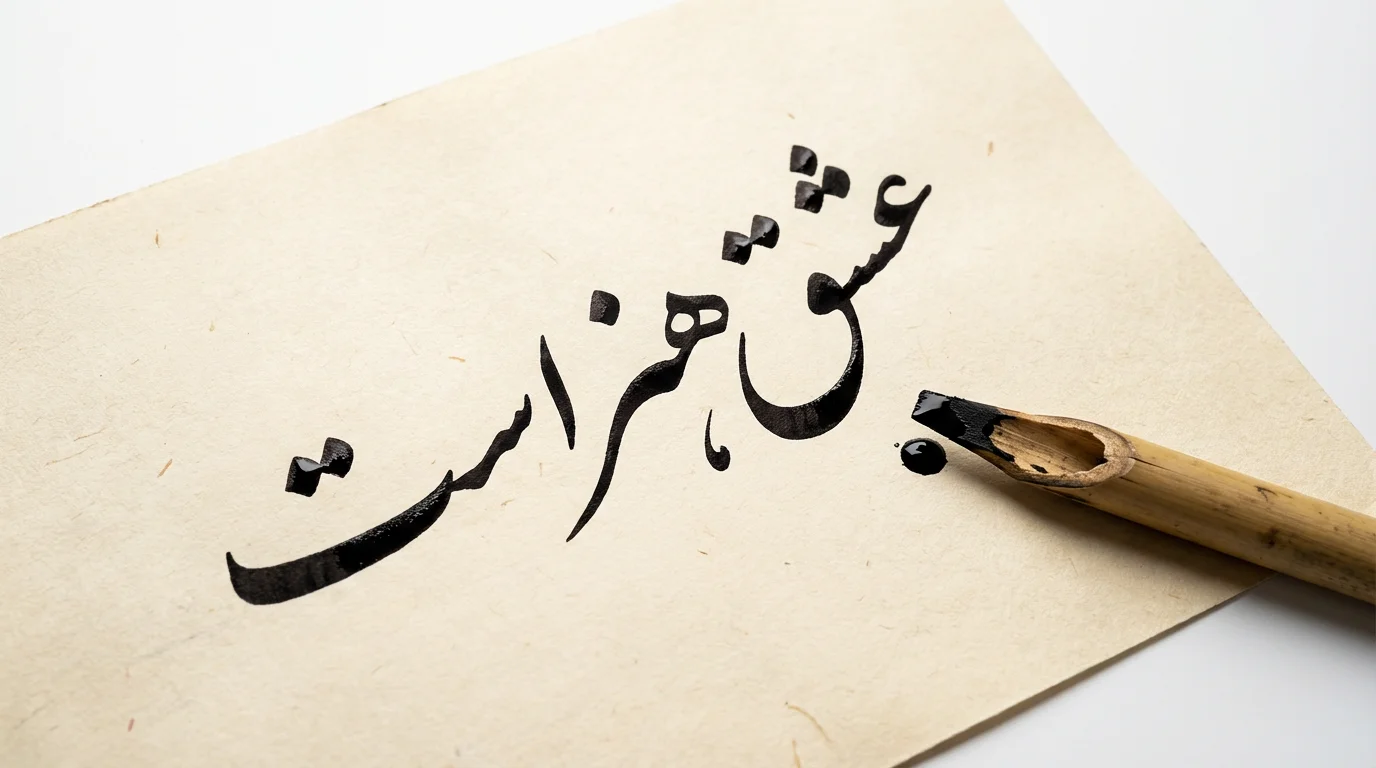 عشق هنر است